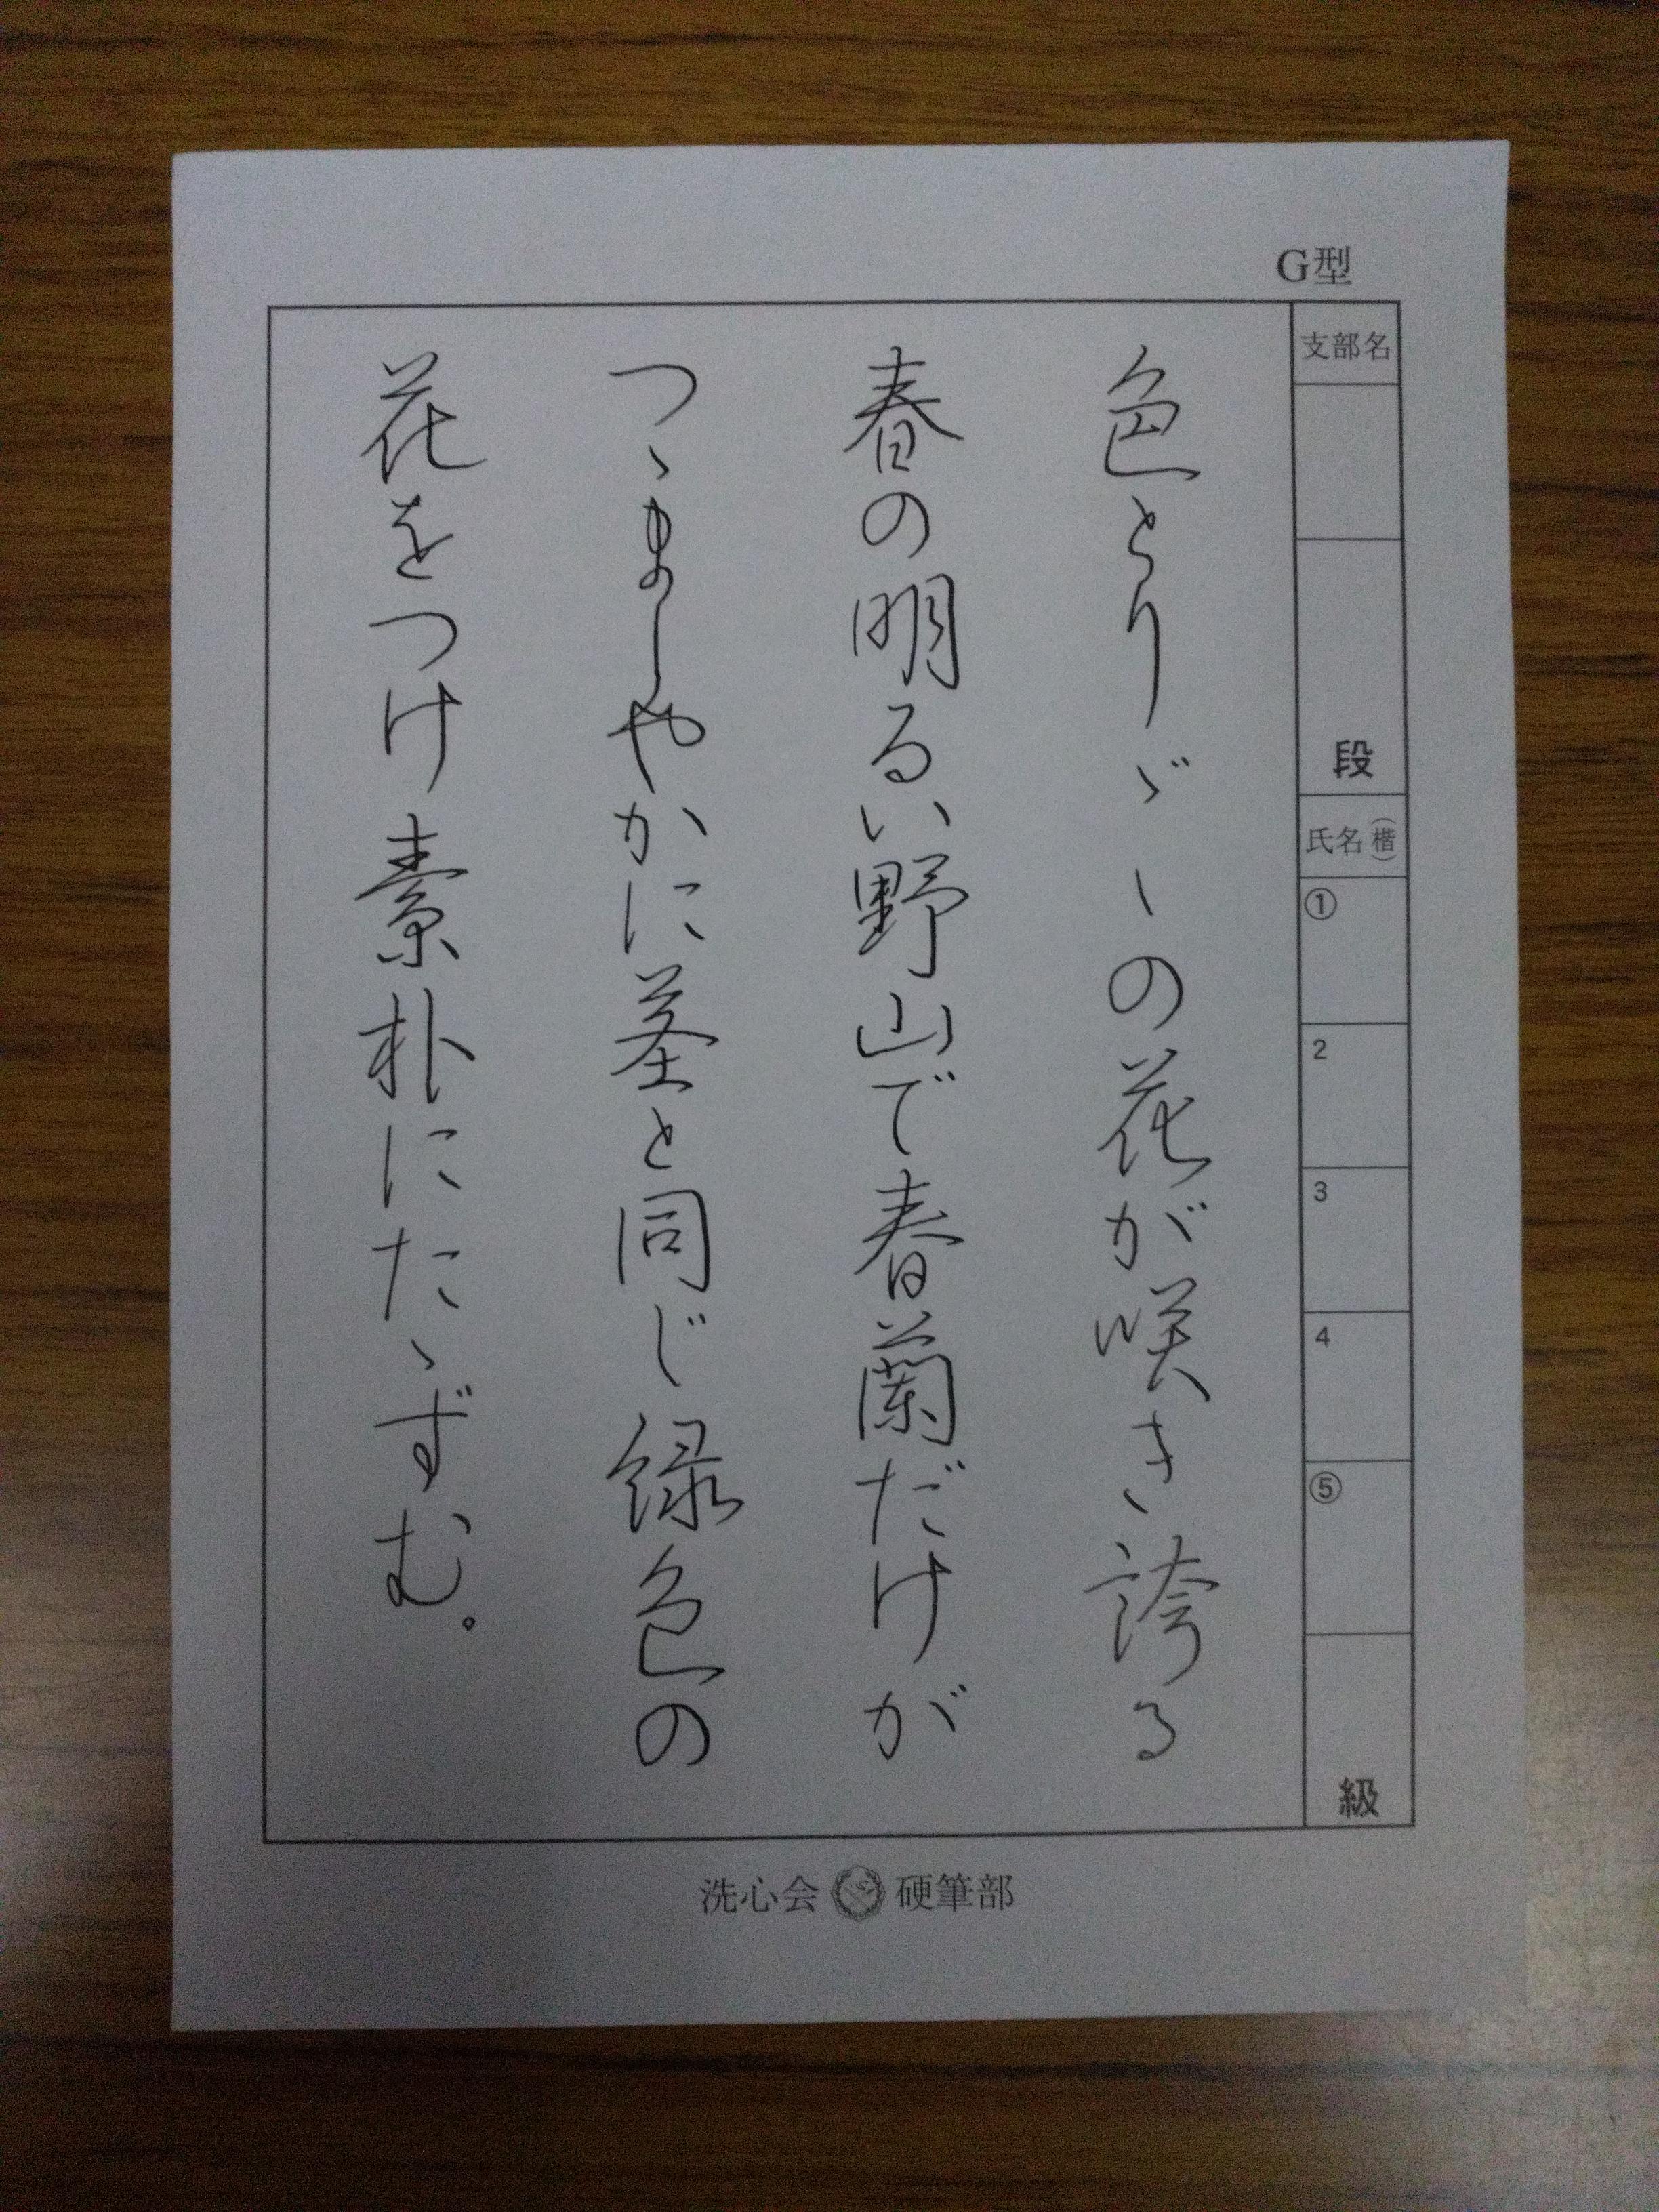 G型
支部名
段
氏名(楷)
①
2
3
4
⑤
級
色とりゞゝの花が咲き誇る
春の明るい野山で春蘭だけが
つゝましやかに茎と同じ緑色の
花をつけ素朴にたゝずむ。
洗心会 硬筆部